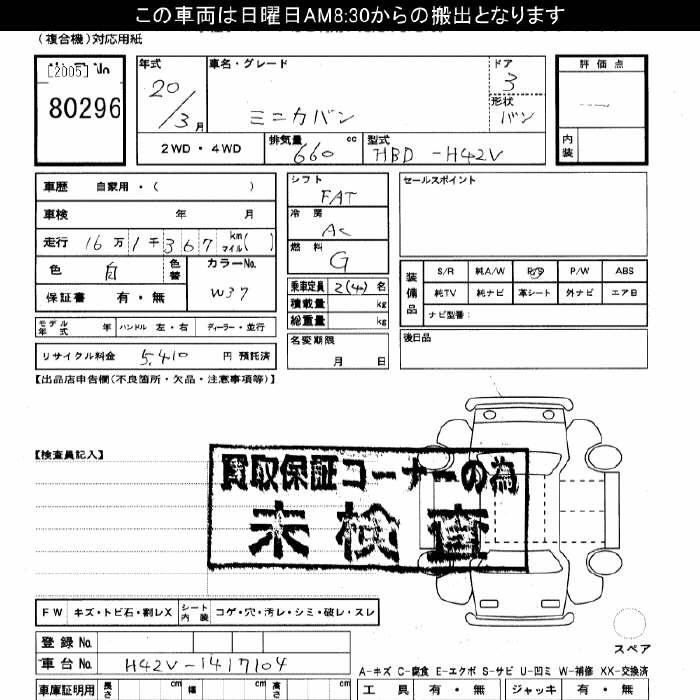 この車両は日曜日AM8:30からの搬出となります
(複合機)対応用紙
[2005]
80296
年式
20/3月
車名・グレード
ミニカバン
ドア
3
形状
バン
評価点
内装
2WD・4WD
排気量 660 cc
型式 HBD-H42V
車歴 自家用・( )
車検 年 月
走行 16万1千367 km マイル( )
色 白 色替
カラーNo. W37
保証書 有・無
シフト FAT
冷房 AC
燃料 G
乗車定員 2(4)名
積載量 kg
総重量 kg
セールスポイント
装備品
S/R 純A/W P/S P/W ABS
純TV 純ナビ 革シート 外ナビ エアB
ナビ型番:
モデル年式 年 ハンドル 左・右 ディーラー・並行
名変期限 月 日
後日品
リサイクル料金 5,410 円 預託済
【出品店申告欄(不良箇所・欠品・注意事項等)】
【検査員記入】
買取保証コーナーの為
未検査
FW キズ・トビ石・割レX シート内装 コゲ・穴・汚レ・シミ・破レ・スレ
スペア
登録No.
車台No. H42V-1417104
A-キズ C-腐食 E-エクボ S-サビ U-凹ミ W-補修 XX-交換済
車庫証明用 長さ cm 幅 cm 高さ cm
工具 有・無 ジャッキ 有・無